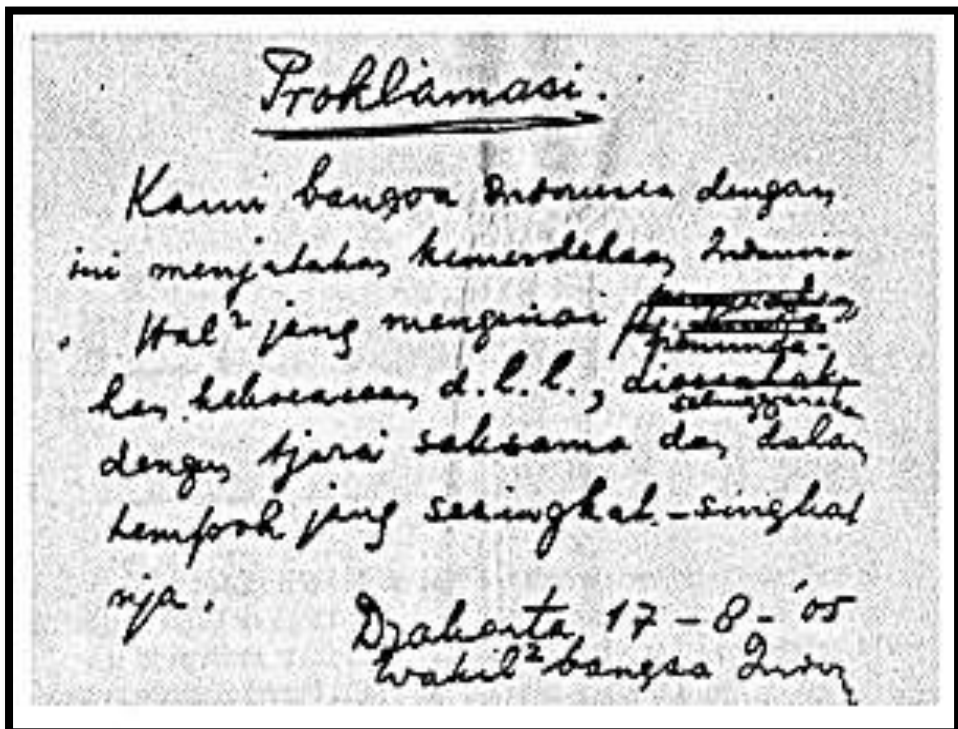 Proklamasi.
Kami bangsa Indonesia dengan
ini menjatakan kemerdekaan Indonesia
. Hal² jang mengenai
pemindahan
kan kekoeasaan d.l.l., diselenggarakan
dengan tjara saksama dan dalam
tempoh jang sesingkat-singkat
nja.
Djakarta, 17 - 8 - '05
Wakil² bangsa Indon